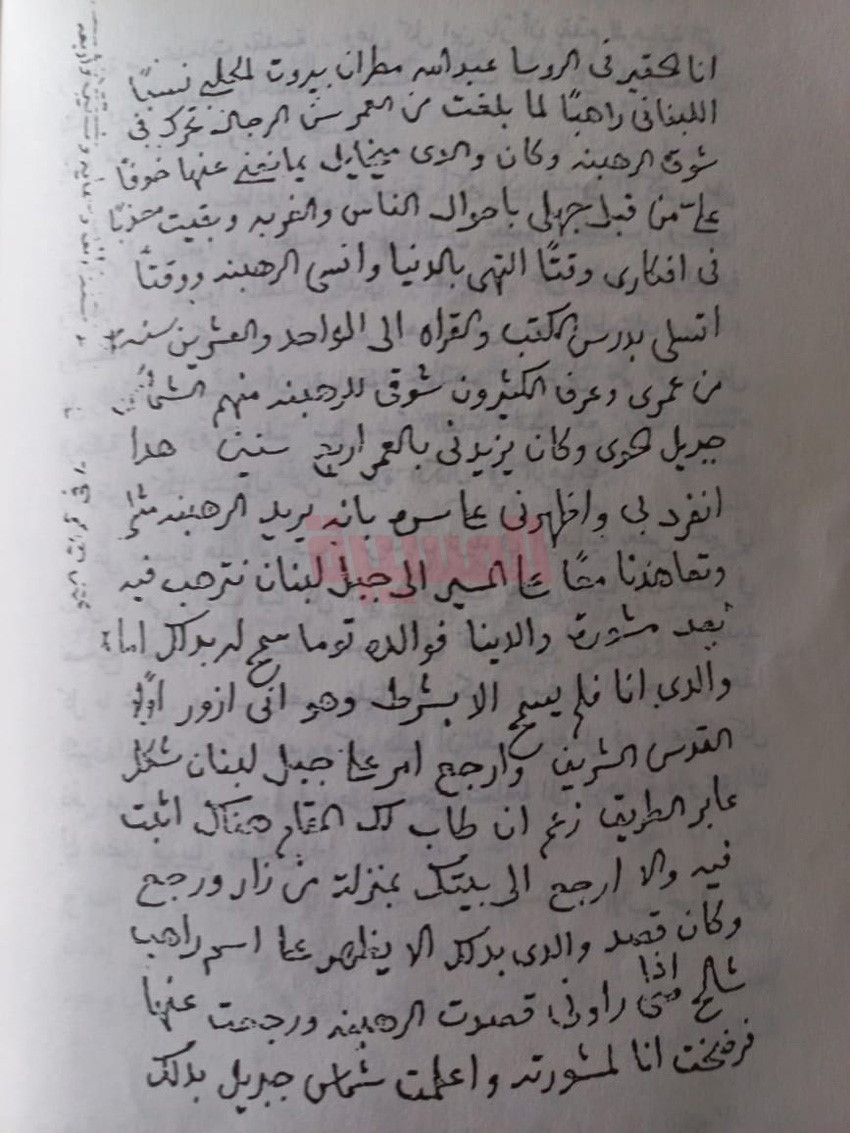 انا الحقير فى الروسا عبدالله مطران بيروت الحلبي نسبًا
اللبنانى راهبًا لما بلغت من العمر سن الرجال تحرك فى
شوق الرهبنه وكان والدى ميخايل يمانعنى عنها خوفًا
على من قبل جهلى باحوال الناس والغربه وبقيت محزبًا
فى افكارى وقتًا التهى بالدنيا وانسى الرهبنه ووقتًا
اتسلى بدرس الكتب والقراه الى الواحد والعشرين سنه
من عمرى وعرف الكثيرون شوقى للرهبنه منهم الشماس
جبريل حوى وكان يزيدنى بالعمر اربع سنين هدا
انفرد بى واظهرنى على سره بانه يريد الرهبنه مثلى
وتعاهدنا معًا على المسير الى جبل لبنان نترهب فيه
بعد مشورة والدينا فوالده توما سمح له بدلك اما
والدى انا فلم يسمح الا بشرط وهو انى ازور اولًا
القدس الشريف وارجع امر على جبل لبنان شكل
عابر الطريق زعم ان طاب لك المقام هناك اثبت
فيه والا ارجع الى بيتك بمنزلة من زار ورجع
وكان قصد والدى بدلك الا يظهر على اسم راهب
شالح متى اذا راونى قصدت الرهبنه ورجعت عنها
فرضخت انا لمشورته واعلمت شماس جبريل بدلك